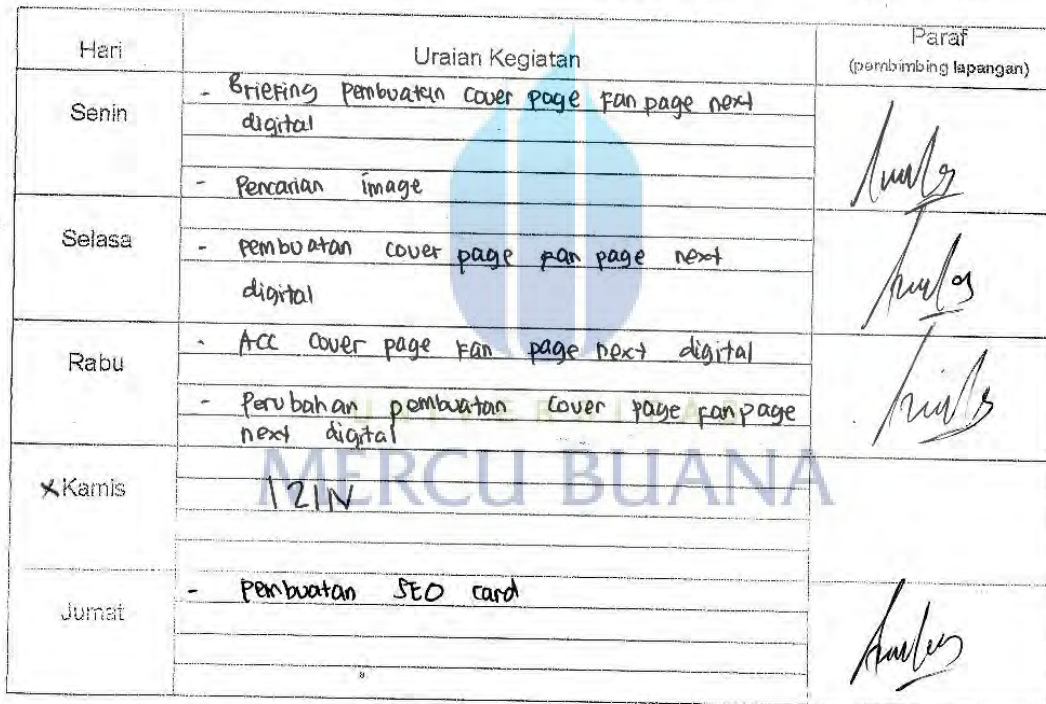 Hari
Uraian Kegiatan
Paraf
(pembimbing lapangan)
Senin
- Briefing pembuatan cover page Fan page next
digital
- Pencarian image
Selasa
- pembuatan cover page Fan page next
digital
Rabu
- ACC cover page Fan page next digital
- Perubahan pembuatan cover page Fan page
next digital
UNIVERSITAS
MERCU BUANA
XKamis
IZIN
Jumat
- pembuatan SEO card